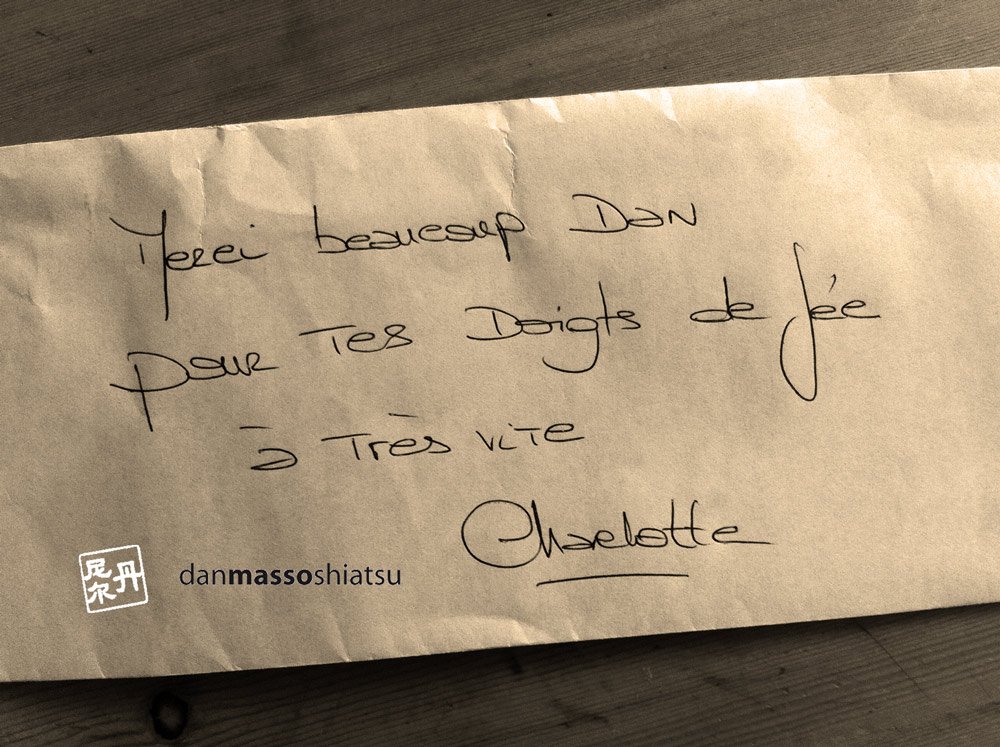 Merci beaucoup Dan
pour tes Doigts de fée
à très vite
Charlotte
丹尼尔
danmassoshiatsu